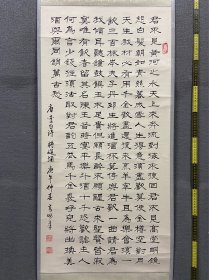 君不見黃河之水天上來奔流到海不復回君不見高堂明鏡
悲白髮朝如青絲暮成雪人生得意須盡歡莫使金樽空對月
天生我材必有用千金散盡還復來烹羊宰牛且為樂會須一
飲三百杯岑夫子丹丘生將進酒杯莫停與君歌一曲請君為
我傾耳聽鐘鼓饌玉不足貴但願長醉不願醒古來聖賢皆寂
寞惟有飲者留其名陳王昔時宴平樂斗酒十千恣歡謔主人
何為言少錢徑須沽取對君酌五花馬千金裘呼兒將出換美
酒與爾同銷萬古愁
唐李白詩 將進酒 庚午仲春